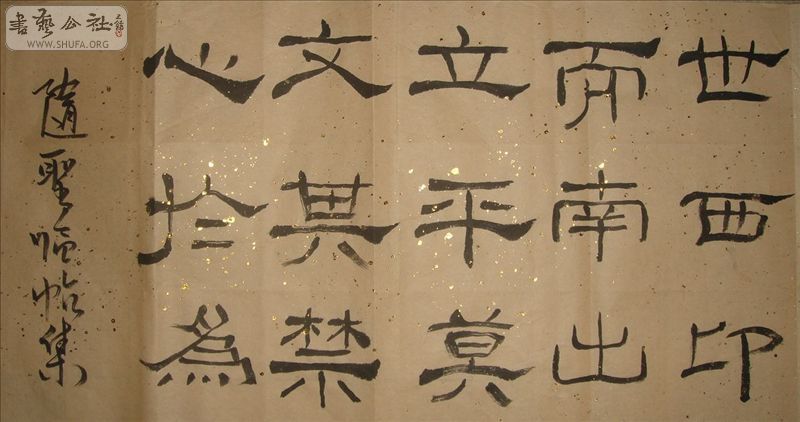 世西印
而南出
立平莫
文其禁
心於爲
隨聖臨帖集
書藝公社
WWW.SHUFA.ORG